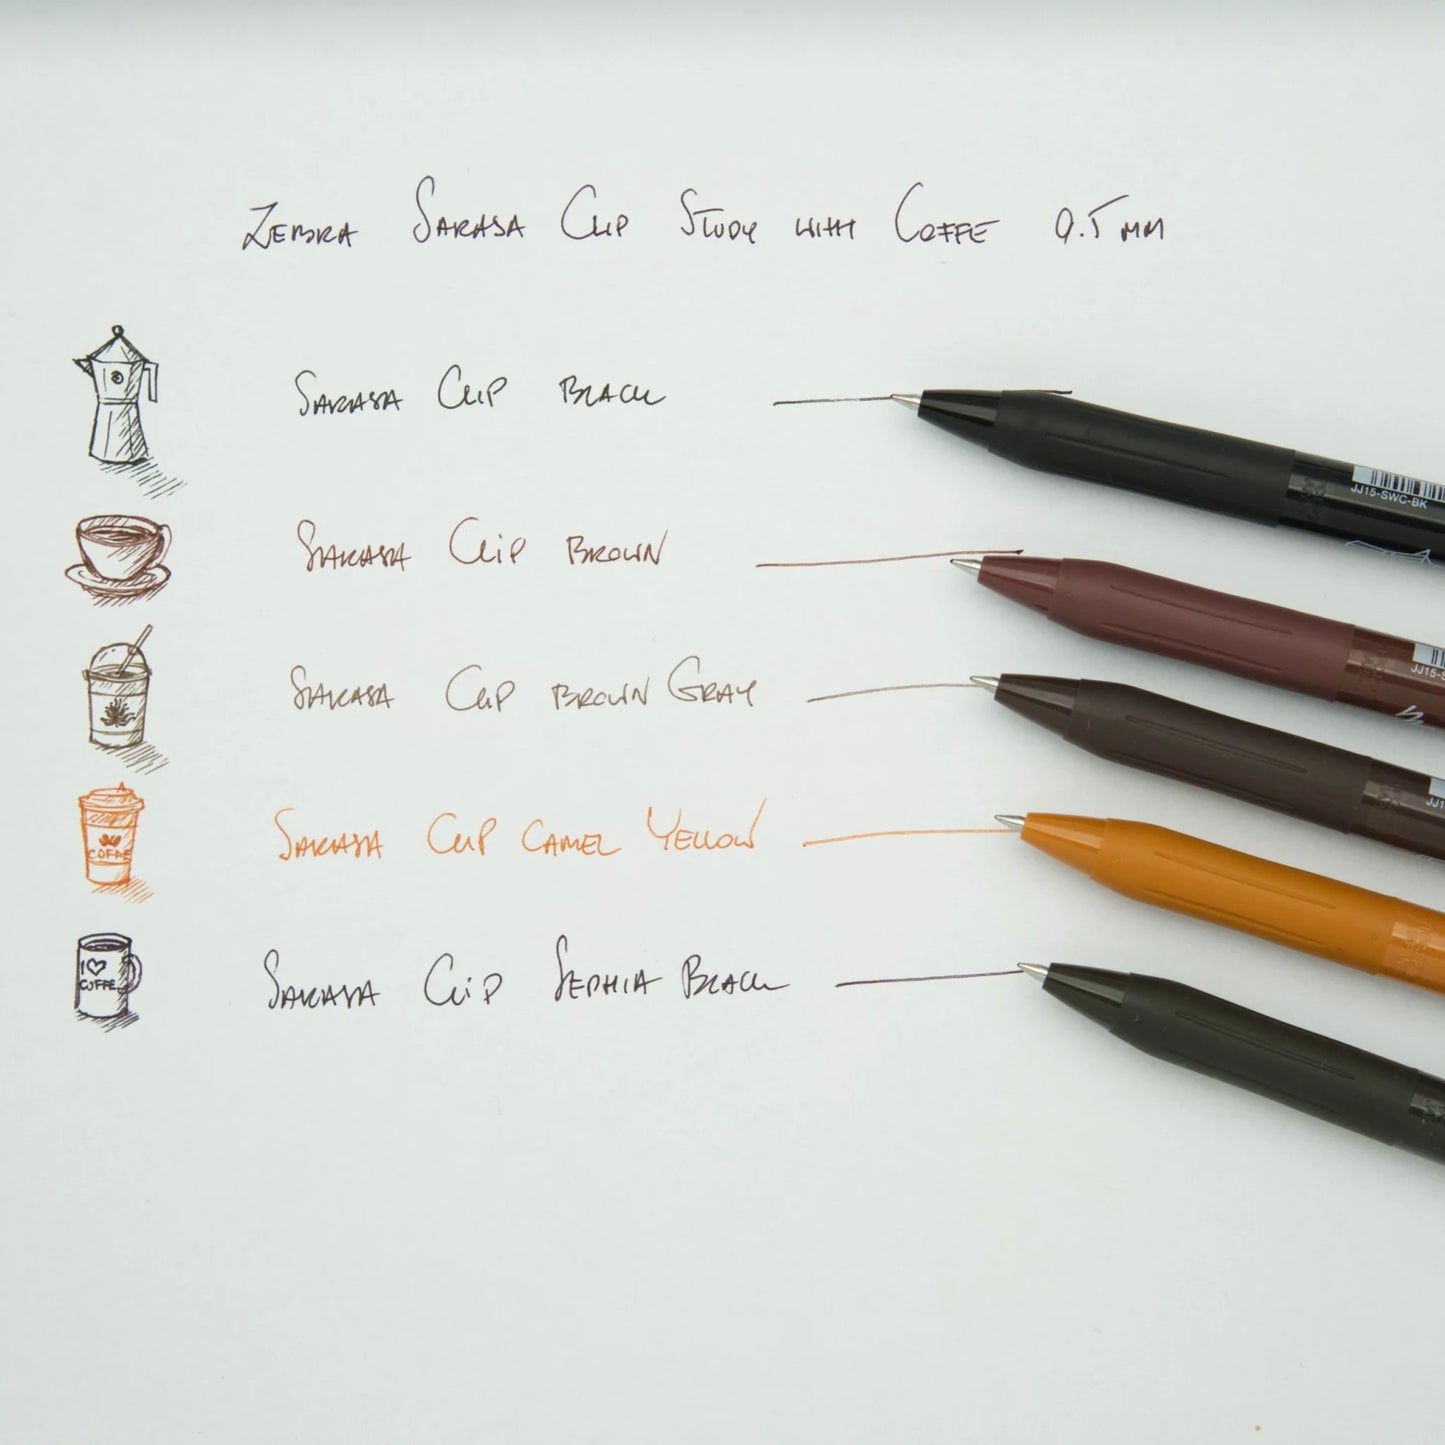 ZEBRA SARASA CLIP STUDY WITH COFFE 0.5 MM
SARASA CLIP BLACK
JJ15-SWC-BK
SARASA CLIP BROWN
JJ15-S
SARASA CLIP BROWN GRAY
JJ1
COFFE
SARASA CLIP CAMEL YELLOW
I ♡
COFFE
SARASA CLIP SEPHIA BLACK